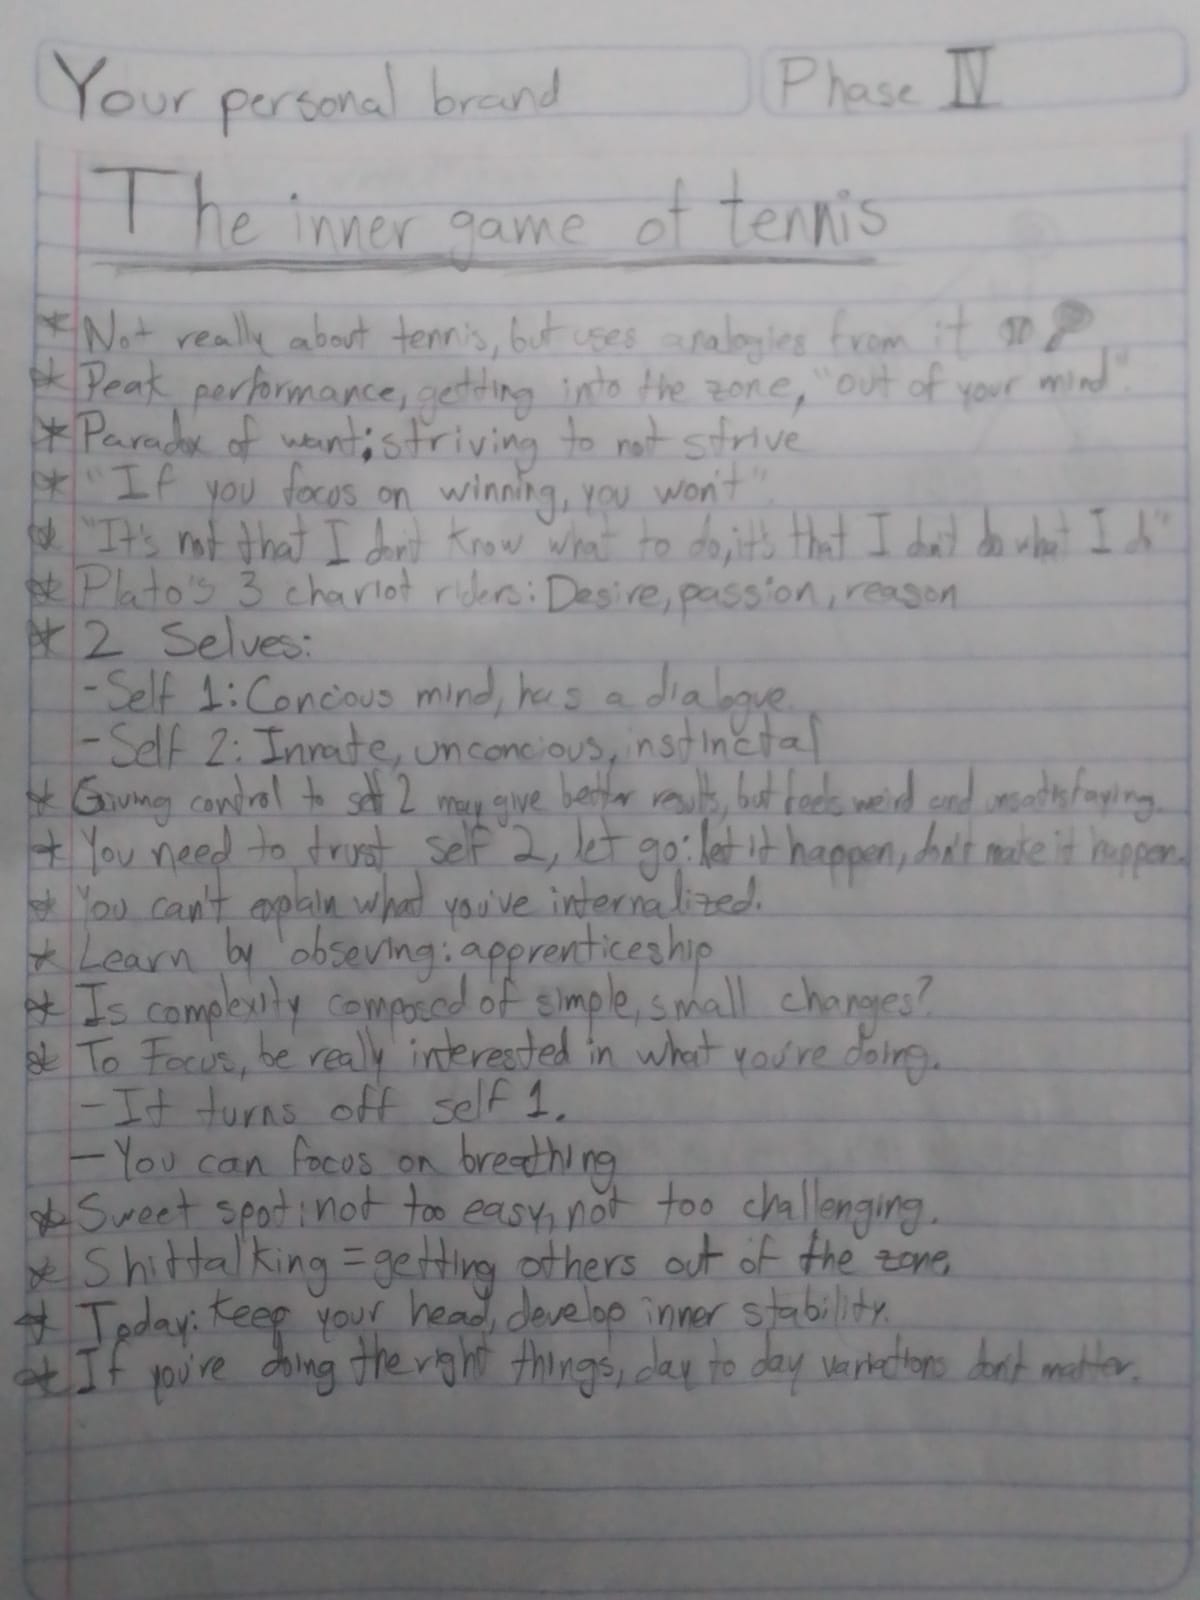 Your personal brand
Phase IV
The inner game of tennis
* Not really about tennis, but uses analogies from it
* Peak performance, getting into the zone, "out of your mind".
* Paradox of want: striving to not strive
* "If you focus on winning, you won't"
* "It's not that I don't know what to do, it's that I don't do what I do"
* Plato's 3 chariot riders: Desire, passion, reason
* 2 Selves:
- Self 1: Concious mind, has a dialogue
- Self 2: Innate, unconcious, instinctal
* Giving control to self 2 may give better results, but feels weird and unsatisfaying.
* You need to trust self 2, let go: let it happen, don't make it happen.
* You can't explain what you've internalized.
* Learn by obseving: apprenticeship
* Is complexity composed of simple, small changes?
* To Focus, be really interested in what you're doing.
- It turns off self 1.
- You can focus on breathing
* Sweet spot: not too easy, not too challenging.
* Shittalking = getting others out of the zone.
* Today: Keep your head, develop inner stability.
* If you're doing the right things, day to day variations don't matter.